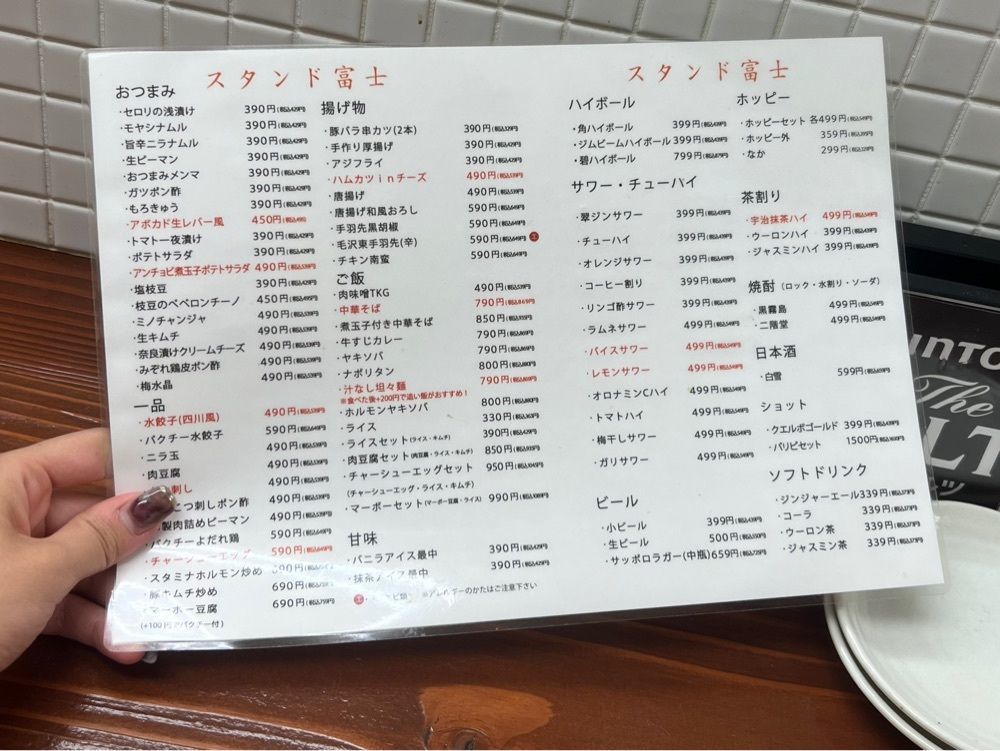 スタンド富士
おつまみ
・セロリの浅漬け 390円(税込429円)
・モヤシナムル 390円(税込429円)
・旨辛ニラナムル 390円(税込429円)
・生ピーマン 390円(税込429円)
・おつまみメンマ 390円(税込429円)
・ガツポン酢 390円(税込429円)
・もろきゅう 390円(税込429円)
・アボカド生レバー風 450円(税込495)
・トマト一夜漬け 390円(税込429円)
・ポテトサラダ 390円(税込429円)
・アンチョビ煮玉子ポテトサラダ 490円(税込539円)
・塩枝豆 390円(税込429円)
・枝豆のペペロンチーノ 450円(税込495円)
・ミノチャンジャ 490円(税込539円)
・生キムチ 490円(税込539円)
・奈良漬けクリームチーズ 490円(税込539円)
・みぞれ鶏皮ポン酢 490円(税込539円)
・梅水晶 490円(税込539円)
一品
・水餃子(四川風) 490円(税込539円)
・パクチー水餃子 590円(税込649円)
・ニラ玉 490円(税込539円)
・肉豆腐 490円(税込539円)
刺し 490円(税込539円)
こつ刺しポン酢 490円(税込539円)
製肉詰めピーマン 490円(税込539円)
・パクチーよだれ鶏 590円(税込649円)
・チャーシューエッグ 590円(税込649円)
・スタミナホルモン炒め 590円(税込649円)
・豚キムチ炒め 690円(税込759円)
・マーボー豆腐 690円(税込759円)
(+100円でパクチー付)
揚げ物
・豚バラ串カツ(2本) 390円(税込429円)
・手作り厚揚げ 390円(税込429円)
・アジフライ 390円(税込429円)
・ハムカツinチーズ 490円(税込539円)
・唐揚げ 490円(税込539円)
・唐揚げ和風おろし 590円(税込649円)
・手羽先黒胡椒 590円(税込649円)
・毛沢東手羽先(辛) 590円(税込649円) エ
・チキン南蛮 590円(税込649円)
ご飯
・肉味噌TKG 490円(税込539円)
・中華そば 790円(税込869円)
・煮玉子付き中華そば 850円(税込935円)
・牛すじカレー 790円(税込869円)
・ヤキソバ 790円(税込869円)
・ナポリタン 800円(税込880円)
・汁なし坦々麺 790円(税込869円)
※食べた後+200円で追い飯がおすすめ!
・ホルモンヤキソバ 800円(税込880円)
・ライス 330円(税込363円)
・ライスセット(ライス・キムチ) 390円(税込429円)
・肉豆腐セット(肉豆腐・ライス・キムチ) 850円(税込935円)
・チャーシューエッグセット 950円(税込1045円)
(チャーシューエッグ・ライス・キムチ)
・マーボーセット(マーボー豆腐・ライス) 990円(税込1089円)
甘味
・バニラアイス最中 390円(税込429円)
・抹茶アイス最中 390円(税込429円)
※アレルギーのかたはご注意下さい
スタンド富士
ハイボール
・角ハイボール 399円(税込439円)
・ジムビームハイボール 399円(税込439円)
・碧ハイボール 799円(税込879円)
サワー・チューハイ
・翠ジンサワー 399円(税込439円)
・チューハイ 399円(税込439円)
・オレンジサワー 399円(税込439円)
・コーヒー割り 399円(税込439円)
・リンゴ酢サワー 399円(税込439円)
・ラムネサワー 499円(税込549円)
・バイスサワー 499円(税込549円)
・レモンサワー 499円(税込549円)
・オロナミンCハイ 499円(税込549円)
・トマトハイ 499円(税込549円)
・梅干しサワー 499円(税込549円)
・ガリサワー 499円(税込549円)
ビール
・小ビール 399円(税込439円)
・生ビール 500円(税込550円)
・サッポロラガー(中瓶) 659円(税込725円)
ホッピー
・ホッピーセット 各499円(税込549円)
・ホッピー外 359円(税込395円)
・なか 299円(税込329円)
茶割り
・宇治抹茶ハイ 499円(税込549円)
・ウーロンハイ 399円(税込439円)
・ジャスミンハイ 399円(税込439円)
焼酎 (ロック・水割り・ソーダ)
・黒霧島 499円(税込549円)
・二階堂 499円(税込549円)
日本酒
・白雪 599円(税込659円)
ショット
・クエルボゴールド 399円(税込439円)
・パリピセット 1500円(税込1650円)
ソフトドリンク
・ジンジャーエール 339円(税込373円)
・コーラ 339円(税込373円)
・ウーロン茶 339円(税込373円)
・ジャスミン茶 339円(税込373円)
The